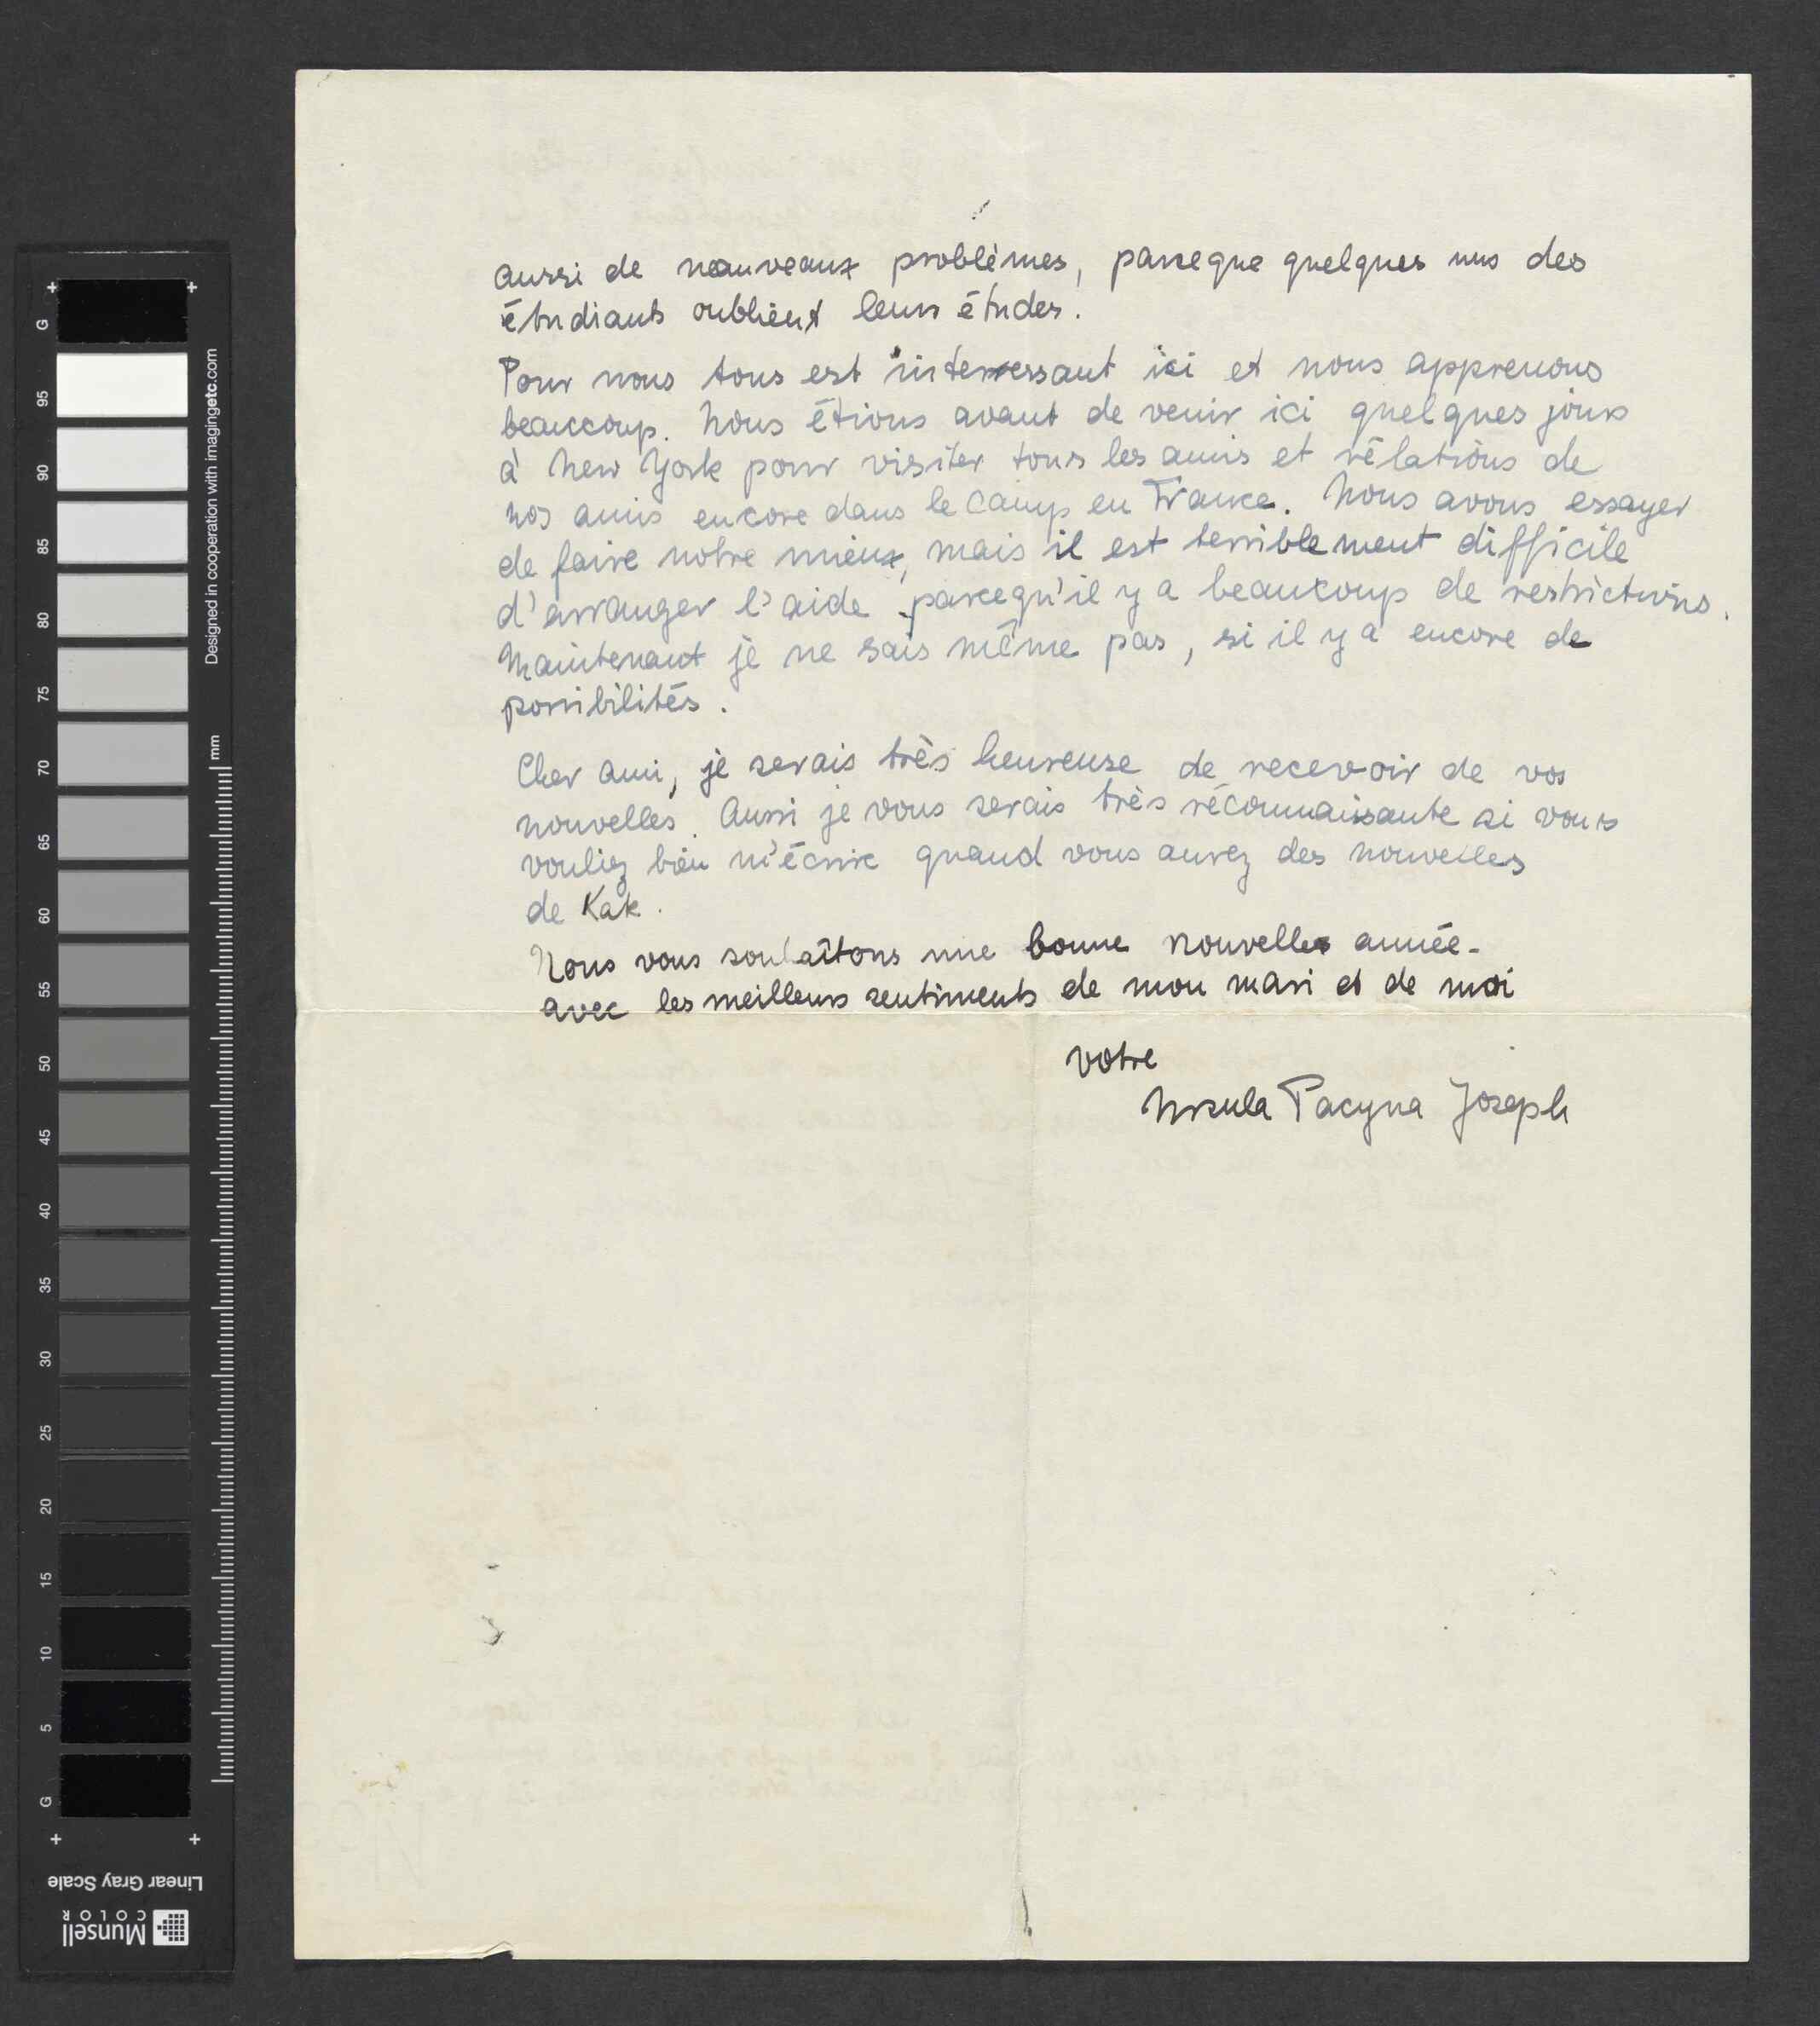 aussi de nouveaux problèmes, parceque quelques uns des
étudiants oublient leurs études.
Pour nous tous est interressant ici et nous apprenons
beauccoup. Nous étions avant de venir ici quelques jours
à New York pour visiter tous les amis et rélations de
nos amis encore dans le camp en France. Nous avons essayer
de faire notre mieux, mais il est terriblement difficile
d'arranger l'aide parcequ'il y a beaucoup de restrictions.
Maintenant je ne sais même pas, si il y a encore de
possibilités.
Cher ami, je serais très heureuse de recevoir de vos
nouvelles. Aussi je vous serais très réconnaissante si vous
vouliez bien m'écrire quand vous aurez des nouvelles
de Kak.
Nous vous souhaîtons une bonne nouvelle année.
avec les meilleurs sentiments de mon mari et de moi
votre
Ursula Pacyna Joseph
G
95
90
85
80
75
70
65
60
55
50
45
40
35
30
25
20
15
10
5
G
mm
Designed in cooperation with imagingetc.com
Linear Gray Scale
Munsell
COLOR